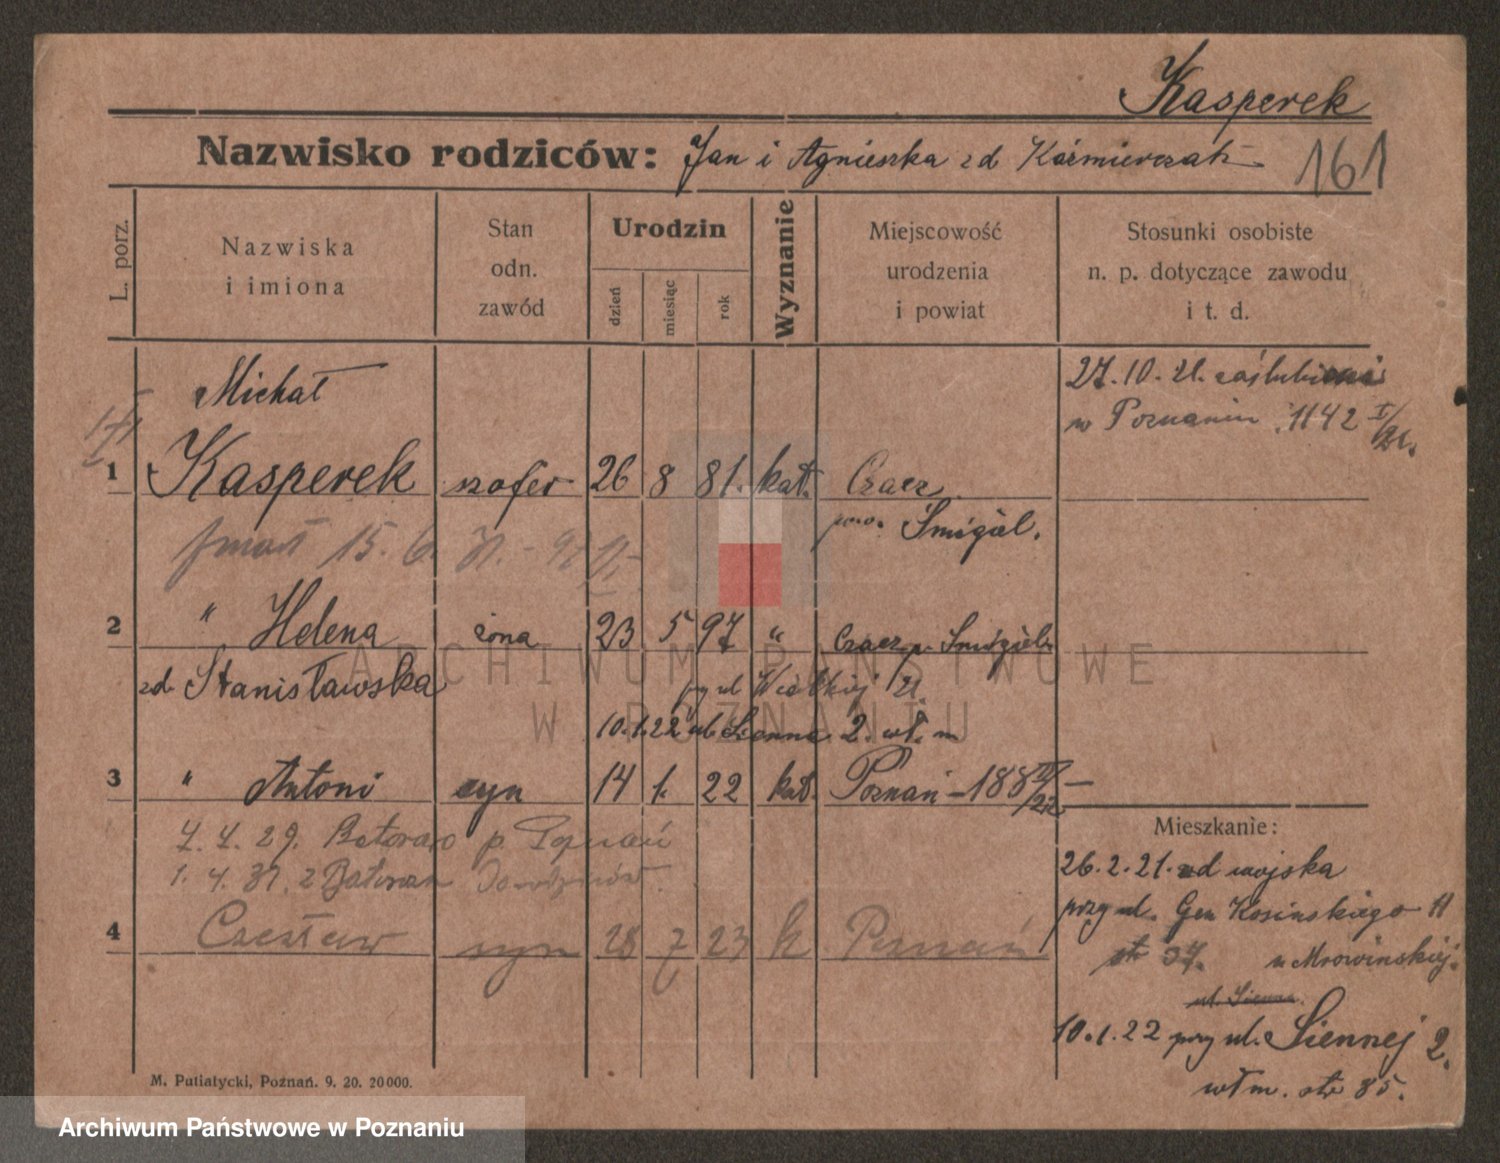 Kasperek
Nazwisko rodziców: Jan i Agnieszka zd Kaźmierczak 161
L. porz.
Nazwiska
i imiona
Stan
odn.
zawód
Urodzin
dzień
miesiąc
rok
Wyznanie
Miejscowość
urodzenia
i powiat
Stosunki osobiste
n. p. dotyczące zawodu
i t. d.
27.10.21. zaślubieni
w Poznaniu 1142 I/21.
Michał
1 Kasperek szofer 26 8 81. kat. Czacz
pow. Śmigiel.
zmarł 15. 6. 31.
2 " Helena żona 23 5 97 " Czacz p. Śmigiel
zd. Stanisławska przy ul Wielkiej 21.
10.1.22 ul. Sienna 2. wł. m
3 " Antoni syn 14 1. 22 kat. Poznań - 188
4.4.29. Batorowo p. Poznań
1.4.31. z Batorowa
4 Czesław syn 28 7 23 k Poznań
Mieszkanie:
26.2.21. od wojska
przy ul. Gen Kosińskiego 11
str 37. u Mrowińskiej.
ul. Sienna
10.1.22 przy ul. Siennej 2.
wł m. str 85.
M. Putiatycki, Poznań. 9. 20. 20000.
ARCHIWUM PAŃSTWOWE
W POZNANIU
Archiwum Państwowe w Poznaniu